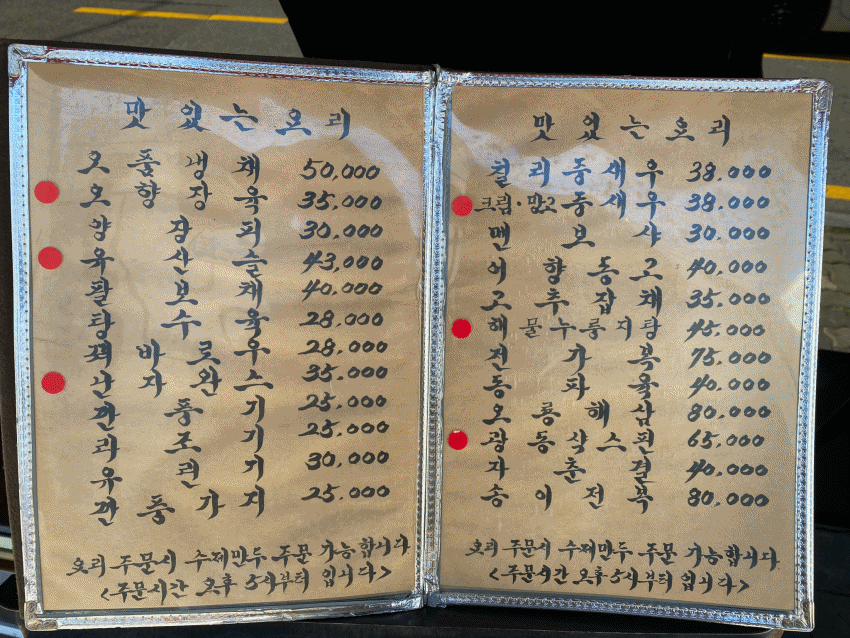 맛있는요리
오품냉채 50,000
오향장육 35,000
양장피 30,000
유산슬 43,000
팔보채 40,000
탕수육 28,000
꿔바로우 28,000
난자완스 35,000
깐풍기 25,000
라조기 25,000
유린기 30,000
깐풍가지 25,000
요리 주문시 수제만두 주문 가능합니다
<주문시간 오후 5시부터 입니다>
맛있는요리
칠리중새우 38,000
크림·망고중새우 38,000
멘보샤 30,000
어향동고 40,000
고추잡채 35,000
해물누룽지탕 45,000
전가복 75,000
동파육 40,000
오룡해삼 80,000
광동삭스핀 65,000
자춘결 40,000
송이전복 80,000
요리 주문시 수제만두 주문 가능합니다
<주문시간 오후 5시부터 입니다>